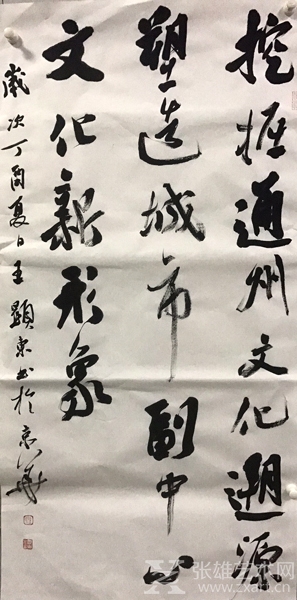 挖掘通州文化遡源
塑造城市副中心
文化新形象
歲次丁酉夏日王顯東书於京華
张雄艺术网
www.cxart.cn